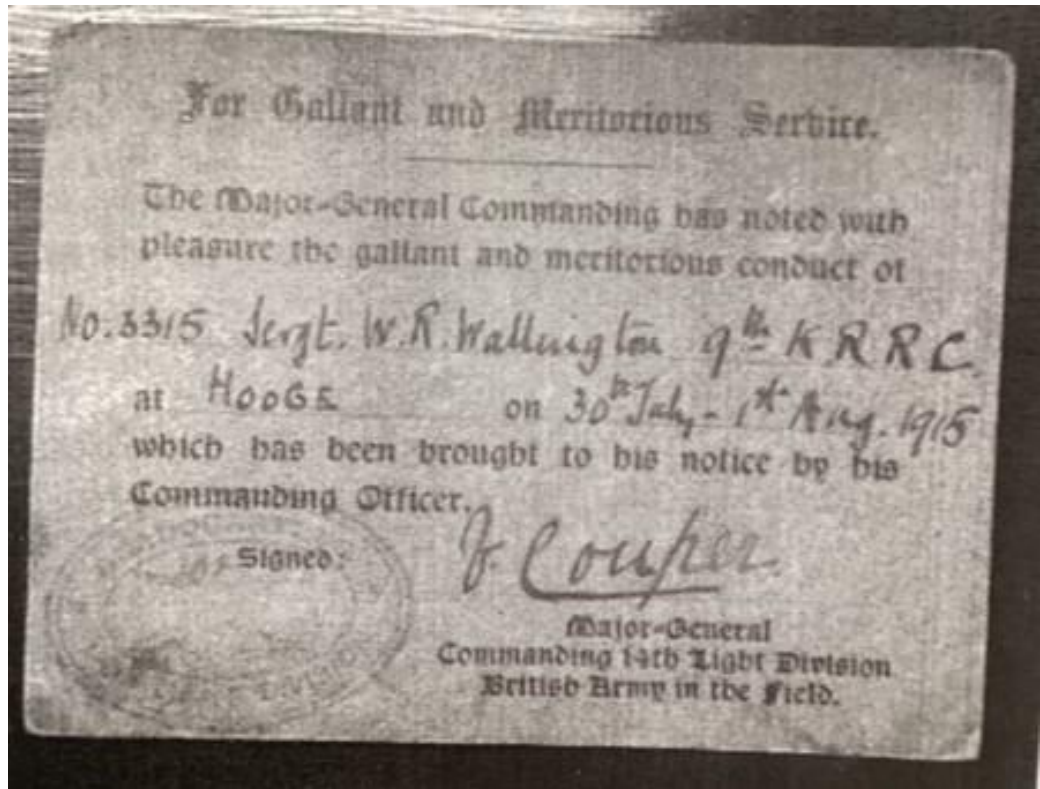 For Gallant and Meritorious Service.
The Major-General Commanding has noted with
pleasure the gallant and meritorious conduct of
No. 3315 Sergt. W. R. Wallington 9th K R R C.
at HOOGE on 30th July - 1st Aug. 1915
which has been brought to his notice by his
Commanding Officer.
Signed: V. Couper
Major-General
Commanding 14th Light Division
British Army in the Field.